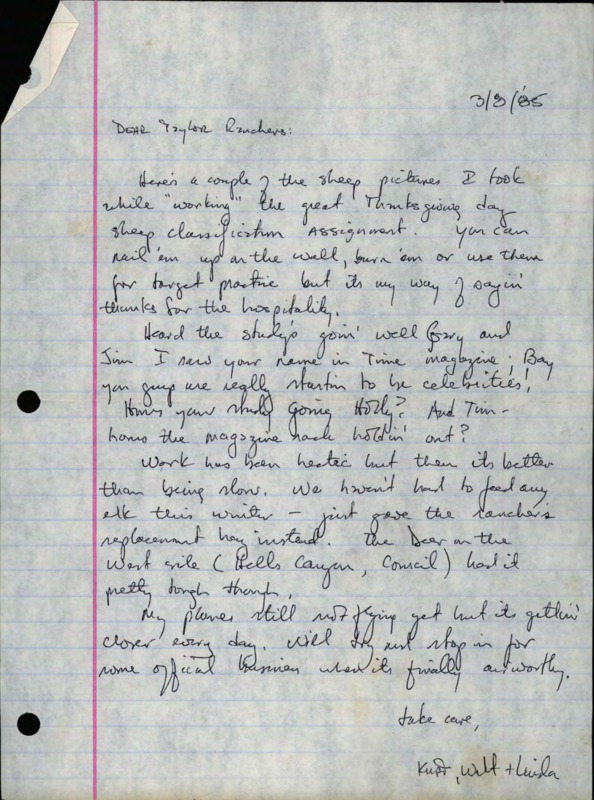 3/3/85
DEAR Taylor Ranchers:
Here's a couple of the sheep pictures I took
while "working" the great Thanksgiving day
sheep classification assignment. You can
nail 'em up on the wall, burn 'em or use them
for target practice but its my way of sayin'
thanks for the hospitality.
Heard the study's goin' well Gary and
Jim I saw your name in Time magazine; Boy
you guys are really startin to be celebrities!
Hows your study going Holly? And Tim -
hows the magazine rack holdin' out?
Work has been hectic but then its better
than being slow. We haven't had to feed any
elk this winter - just gave the ranchers
replacement hay instead. The Deer on the
West side (Hells Canyon, Council) had it
pretty tough though.
My planes still not flying yet but its gettin'
closer every day. Will try and stop in for
some official business when its finally airworthy.
take care,
Kurt, Walt + Linda